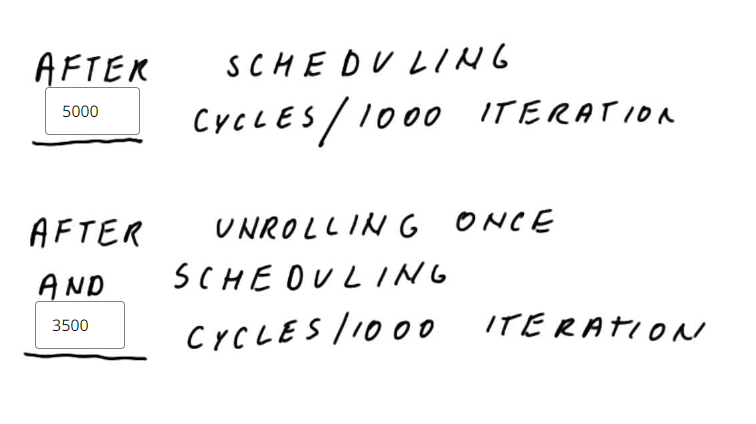 AFTER SCHEDULING
5000 CYCLES/1000 ITERATION
AFTER UNROLLING ONCE
AND SCHEDULING
3500 CYCLES/1000 ITERATION